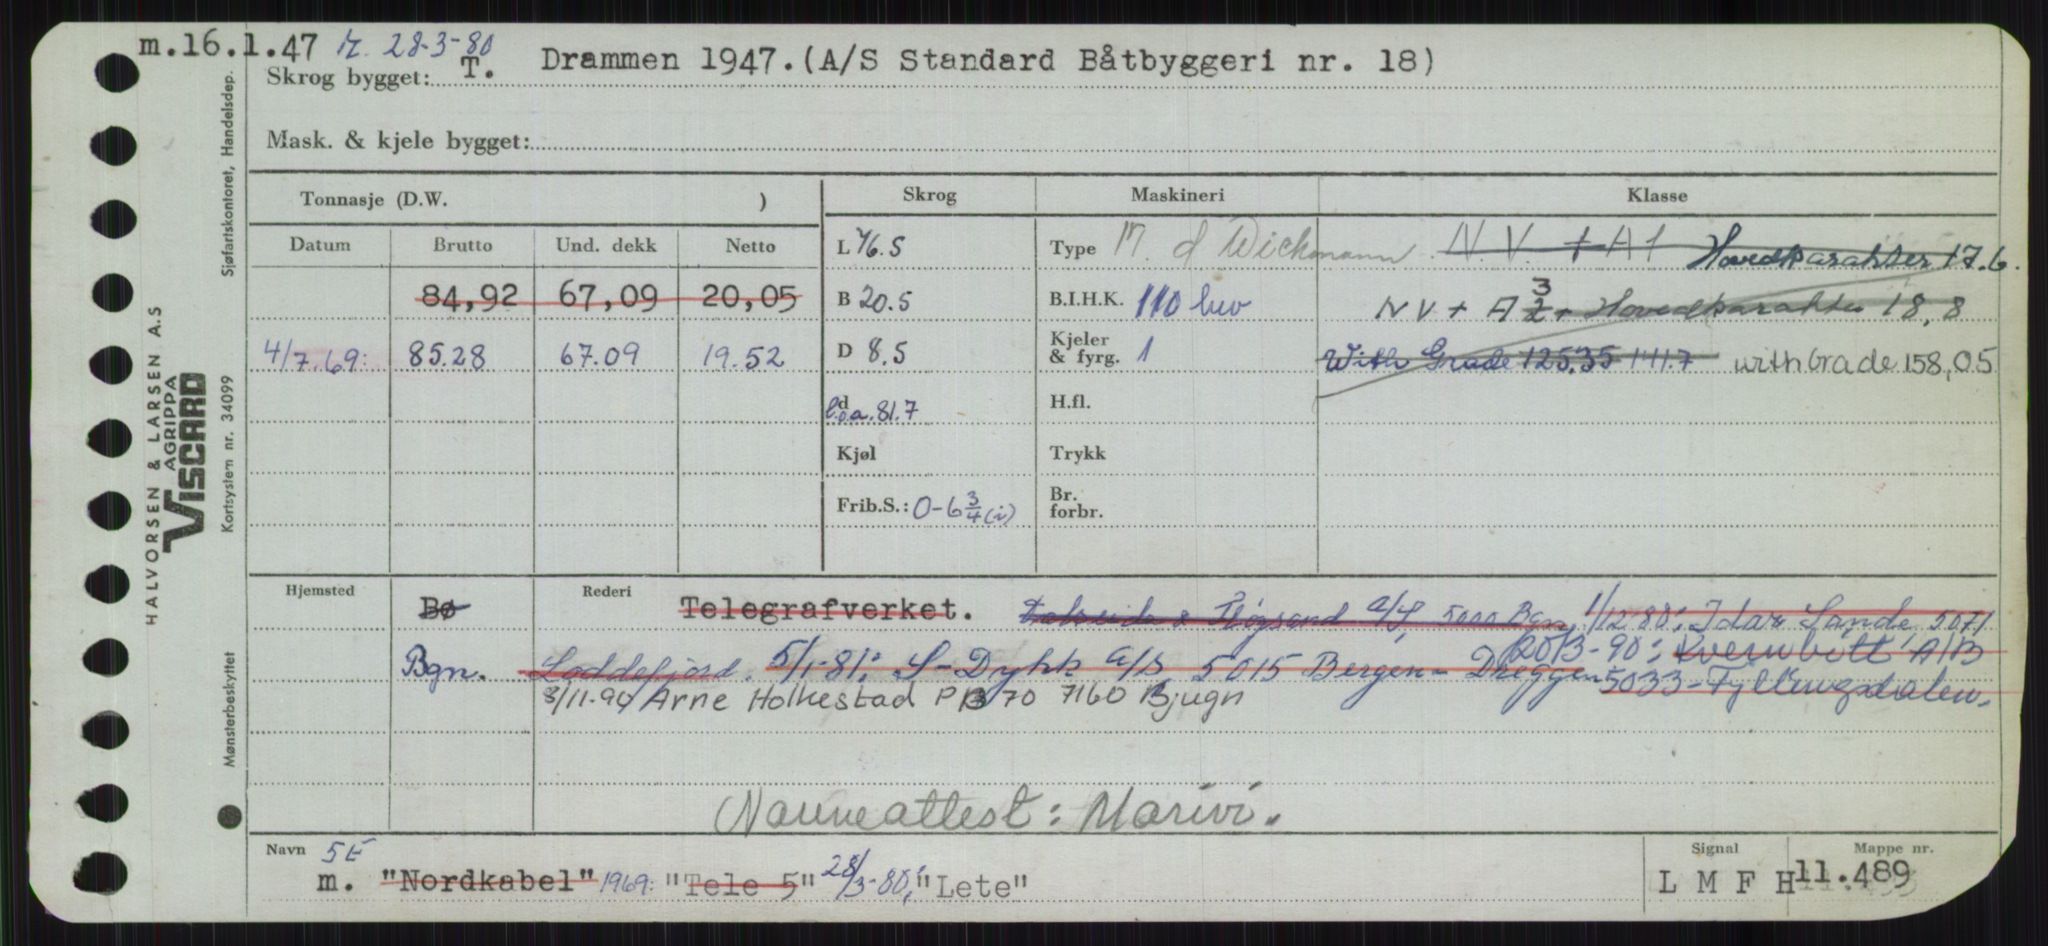 m.16.1.47 M. 28-3-80
Skrog bygget: T. Drammen 1947. (A/S Standard Båtbyggeri nr. 18)
Mask. & kjele bygget:
Tonnasje (D.W. ) Skrog Maskineri Klasse
Datum Brutto Und. dekk Netto L 76.5 Type M. d Wichmann N.V. + A1 Hovedkarakter 17.6.
84,92 67,09 20,05 B 20.5 B.I.H.K. 110 hev NV + A 3/2 + Hovedkarakter 18,8
4/7.69: 85.28 67.09 19.52 D 8.5 Kjeler & fyrg. 1 With Grade 125.35 141.7 with Grade 158,05
d l.o.a. 81.7 H.fl.
Kjøl Trykk
Frib.S.: 0-6 3/4 (i) Br. forbr.
Hjemsted Bø Rederi Telegrafverket. & Høysand A/S, 5000 Bgn. 1/12-80: Idar Sande, 5071
Bgn. Loddefjord. 5/1-81: S-Dykk A/S 5015 Bergen - Dreggen 20/3-90: Kvernbitt A/B
5033-Fyllingsdalen.
8/11-90 Arne Holkestad PB 70 7160 Bjugn
Navneattest: Marivi.
Navn 5E Signal Mappe nr.
m. "Nordkabel" 1969: "Tele 5" 28/3-80: "Lete" L M F H 11.489
Sjøfartskontoret, Handelsdep.
Kortsystem nr. 34099
Mønsterbeskyttet
HALVORSEN & LARSEN A.S
AGRIPPA
VISCARD